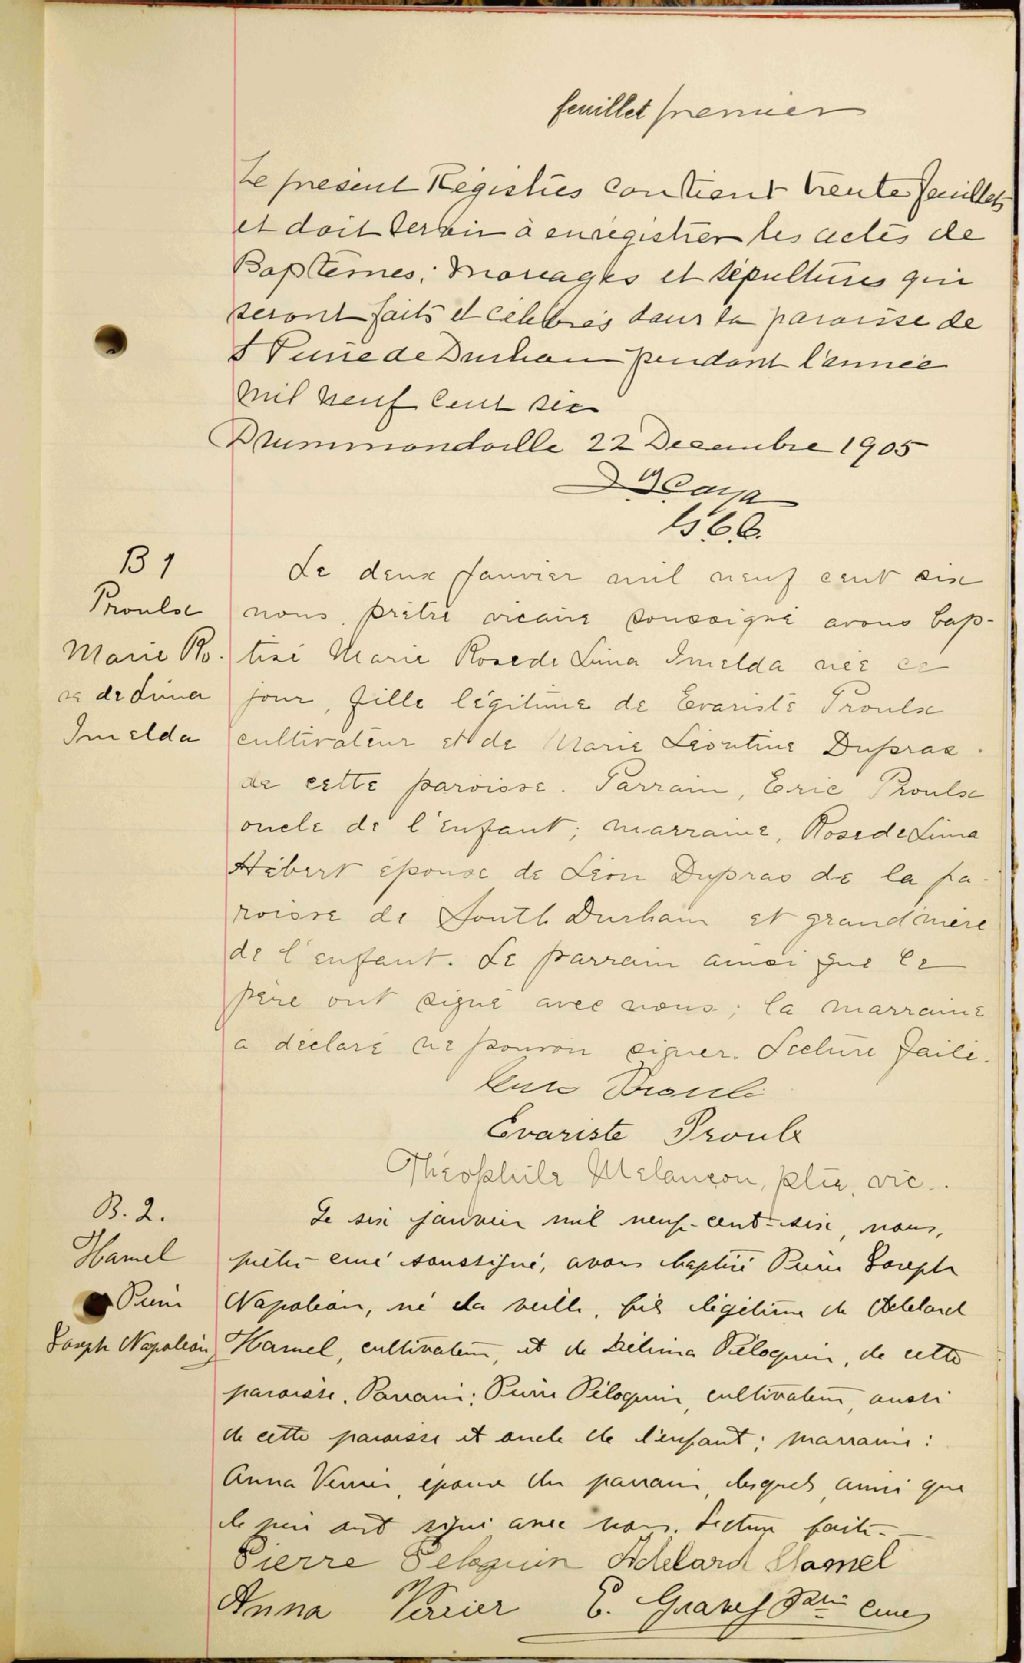 feuillet premier
Le présent Régistres contient trente feuillets
et doit servir à enrégistrer les actes de
Baptêmes; Mariages et Sépultures qui
seront faits et célébrés dans la paroisse de
St Pierre de Durham pendant l'année
mil neuf cent six
Drummondville 22 Decembre 1905
Caya
B 1
Proulx
Marie Ro-
se de Lima
Imelda
Le deux Janvier mil neuf cent six
nous, prêtre vicaire soussigné avons bap-
tisé Marie Rose de Lima Imelda née ce
jour, fille légitime de Evariste Proulx
cultivateur et de Marie Léontine Dupras
de cette paroisse. Parrain, Eric Proulx
oncle de l'enfant; marraine, Rose de Lima
Hébert épouse de Léon Dupras de la pa-
roisse de South Durham et grand'mère
de l'enfant. Le parrain ainsi que le
père ont signé avec nous; la marraine
a déclaré ne pouvoir signer. Lecture faite.
Proulx
Evariste Proulx
Théophile Melançon, ptre, vic.
B. 2.
Hamel
Pierre
Joseph Napoléon
Le six janvier mil neuf-cent-six, nous,
prêtre-curé soussigné, avons baptisé Pierre Joseph
Napoléon, né la veille, fils légitime de Adélard
Hamel, cultivateur, et de Délima Péloquin, de cette
paroisse. Parrain: Pierre Péloquin, cultivateur, aussi
de cette paroisse et oncle de l'enfant; marraine:
Anna Verrier, épouse du parrain, lesquels, ainsi que
le père ont signé avec nous. Lecture faite.
Pierre Peloquin Adelard Hamel
Anna Verrier E. Gravel Ptre curé